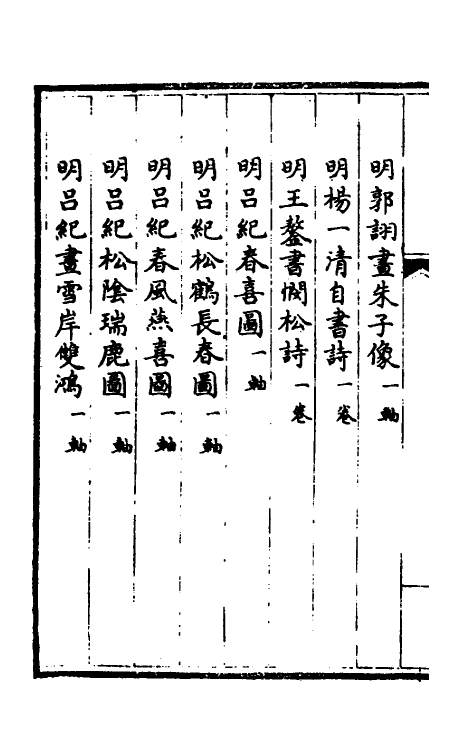 明郭詡畫朱子像一軸
明楊一清自書詩一卷
明王鏊書憫松詩一卷
明呂紀春喜圖一軸
明呂紀松鶴長春圖一軸
明呂紀春風燕喜圖一軸
明呂紀松陰瑞鹿圖一軸
明呂紀畫雪岸雙鴻一軸